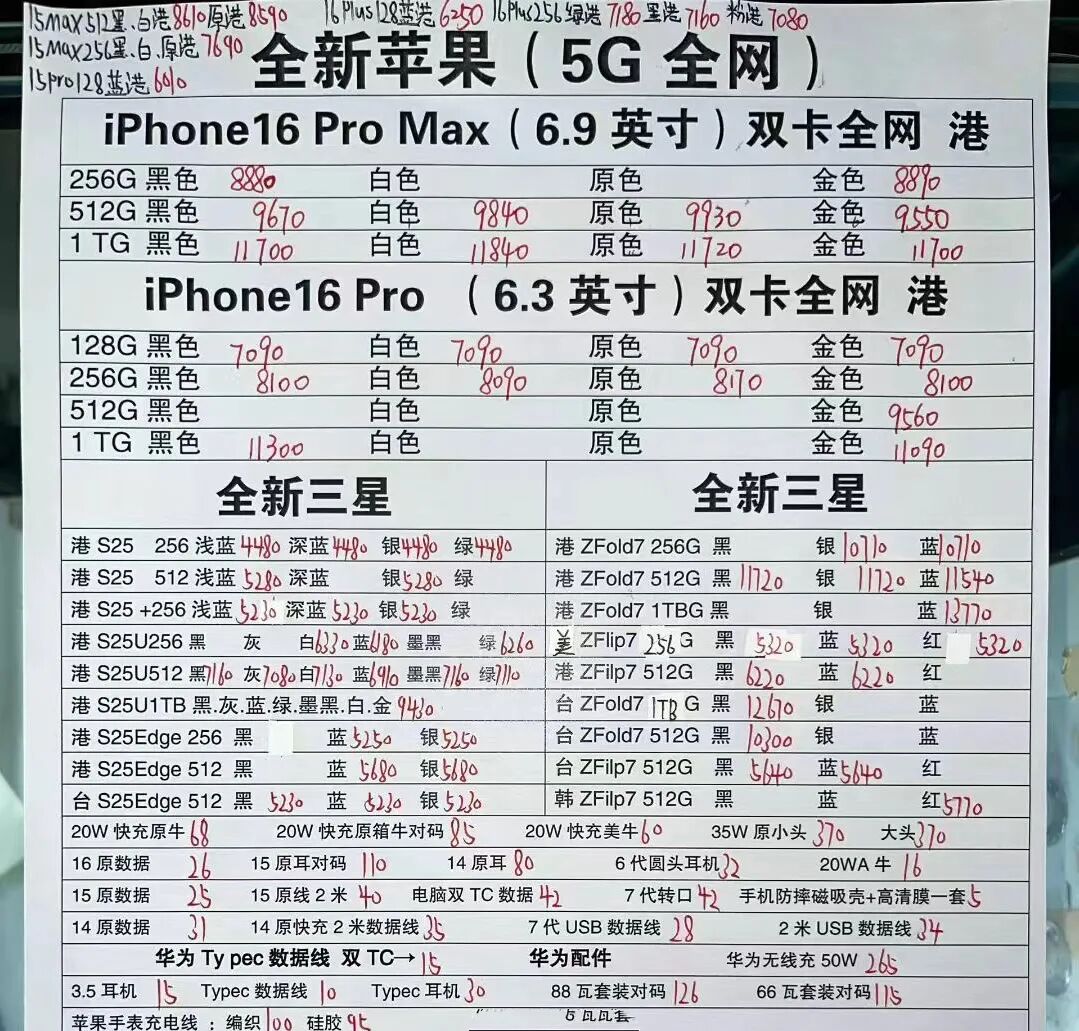 15Max512黑.白港8610原港8590 16Plus128蓝港6250 16Plus256绿港7180黑港7160粉港7080
15Max256黑.白.原港7690
15pro128蓝港6010
全新苹果（5G 全网）
iPhone16 Pro Max（6.9 英寸）双卡全网 港
256G 黑色 8880 白色 原色 金色 8890
512G 黑色 9670 白色 9840 原色 9930 金色 9550
1 TG 黑色 11700 白色 11840 原色 11720 金色 11700
iPhone16 Pro （6.3 英寸）双卡全网 港
128G 黑色 7090 白色 7090 原色 7090 金色 7090
256G 黑色 8100 白色 8090 原色 8170 金色 8100
512G 黑色 白色 原色 金色 9560
1 TG 黑色 11300 白色 原色 金色 11090
全新三星 全新三星
港 S25 256 浅蓝4480 深蓝4480 银4480 绿4480 港 ZFold7 256G 黑 银10710 蓝10710
港 S25 512 浅蓝5280 深蓝 银5280 绿 港 ZFold7 512G 黑11720 银 11720 蓝11540
港 S25 +256 浅蓝5230 深蓝5230 银5230 绿 港 ZFold7 1TBG 黑 银 蓝13770
港 S25U256 黑 灰 白6330 蓝6180 墨黑 绿6260 美 ZFlip7 256G 黑 5320 蓝 5320 红 5320
港 S25U512 黑7160 灰7080 白7130 蓝6910 墨黑7160 绿7110 港 ZFilp7 512G 黑 6220 蓝 6220 红
港 S25U1TB 黑.灰.蓝.绿.墨黑.白.金9430 台 ZFold7 1TB G 黑 12670 银 蓝
港 S25Edge 256 黑 蓝5250 银5250 台 ZFold7 512G 黑 10300 银 蓝
港 S25Edge 512 黑 蓝 5680 银5680 台 ZFilp7 512G 黑 5640 蓝5640 红
台 S25Edge 512 黑 5230 蓝 5230 银5230 韩 ZFilp7 512G 黑 蓝 红5770
20W 快充原牛68 20W 快充原箱牛对码85 20W 快充美牛60 35W 原小头370 大头370
16 原数据 26 15 原耳对码 110 14 原耳 80 6 代圆头耳机32 20WA 牛 16
15 原数据 25 15 原线 2 米 40 电脑双 TC 数据42 7 代转口42 手机防摔磁吸壳+高清膜一套5
14 原数据 31 14 原快充 2 米数据线35 7 代 USB 数据线28 2 米 USB 数据线34
华为 Ty pec 数据线 双 TC→15 华为配件 华为无线充 50W 265
3.5 耳机 15 Typec 数据线10 Typec 耳机30 88 瓦套装对码126 66 瓦套装对码115
苹果手表充电线：编织100 硅胶95